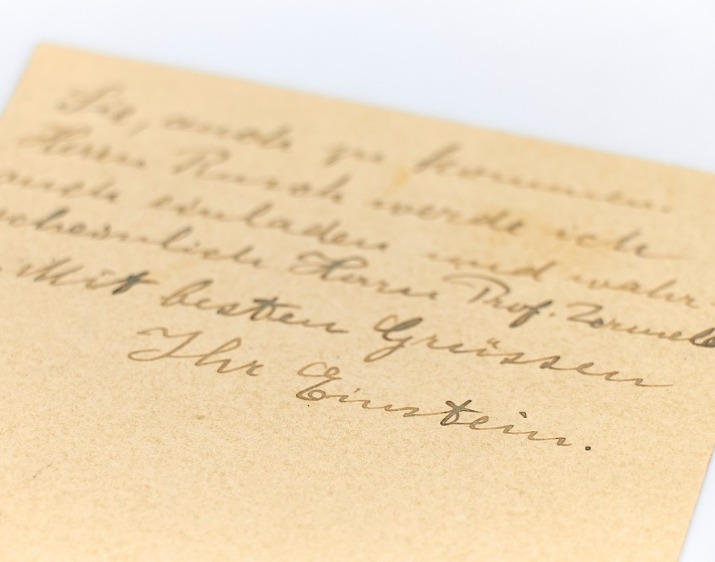 Sie, auch zu kommen.
Herrn Rusch werde ich
auch einladen und wahr-
scheinlich Herrn Prof.
Mit besten Grüssen
Ihr Einstein.